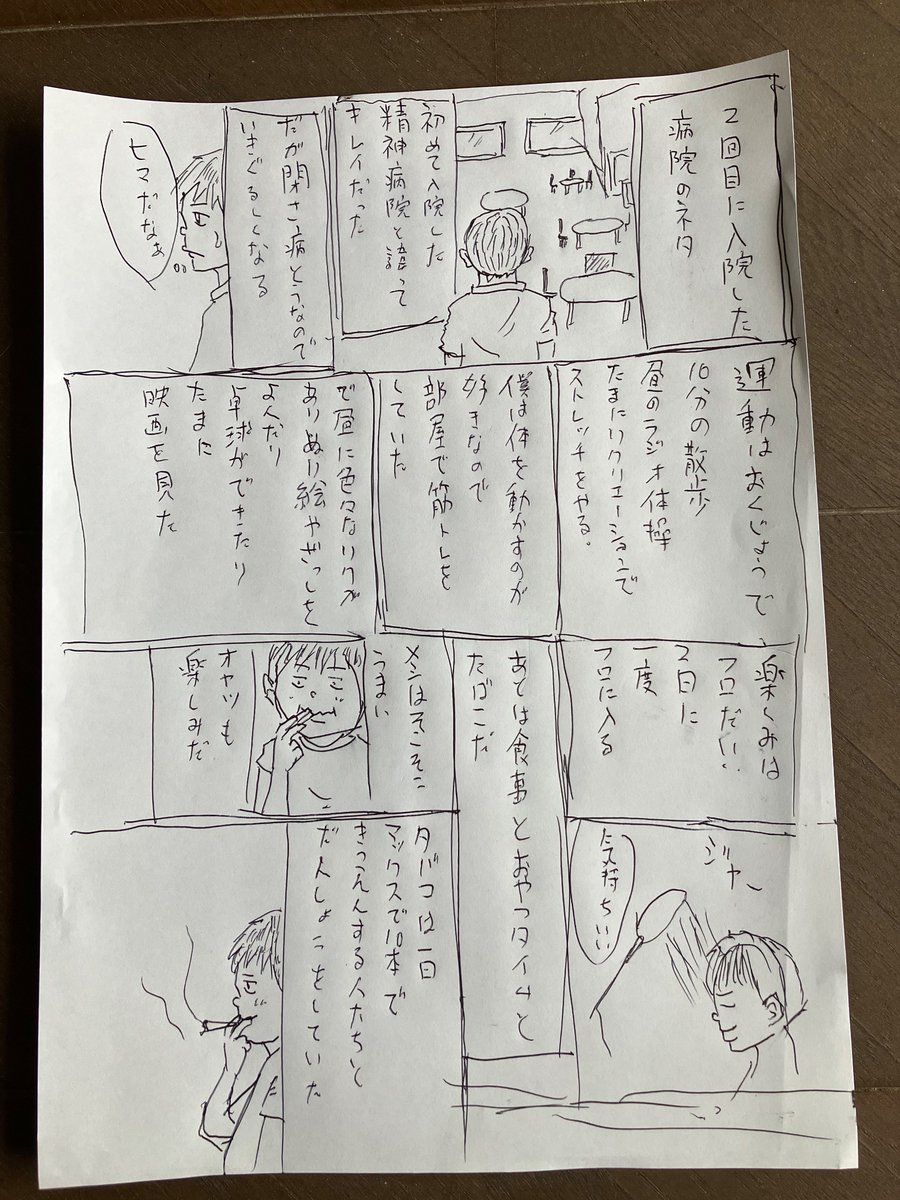 2回目に入院した
病院のネタ
初めて入院した
精神病院と違って
キレイだった
だが閉さ病とうなので
いきぐるしくなる
ヒマだなぁ
運動はおくじょうで、
10分の散歩
昼のラジオ体操
たまにリクリエーションで
ストレッチをやる。
僕は体を動かすのが
好きなので
部屋で筋トレを
していた
で昼に色々なリクが
ありぬり絵やざっしを
よんだり
卓球ができたり
たまに
映画を見た
楽しみは
フロだい、
2日に
一度
フロに入る
ジャー
気持ちいい
あとは食事とおやつタイムと
たばこだ
メシはそこそこ
うまい
オヤツも
楽しみだ
タバコは一日
マックスで10本で
きつえんする人たちと
だんしょうをしていた